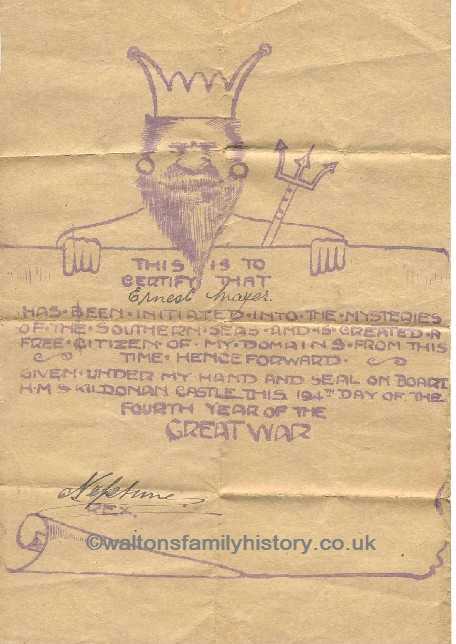 THIS IS TO
CERTIFY THAT
Ernest Mayes.
HAS·BEEN·INITIATED·INTO·THE·MYSTERIES
OF·THE·SOUTHERN·SEAS·AND·IS·CREATED·A
FREE·CITIZEN·OF·MY·DOMAINS·FROM·THIS
TIME·HENCEFORWARD·
GIVEN·UNDER·MY·HAND·AND·SEAL·ON·BOARD
H·M·S·KILDONAN·CASTLE·THIS·194TH·DAY·OF·THE
FOURTH YEAR OF THE
GREAT WAR
Neptune.
REX.
©waltonsfamilyhistory.co.uk